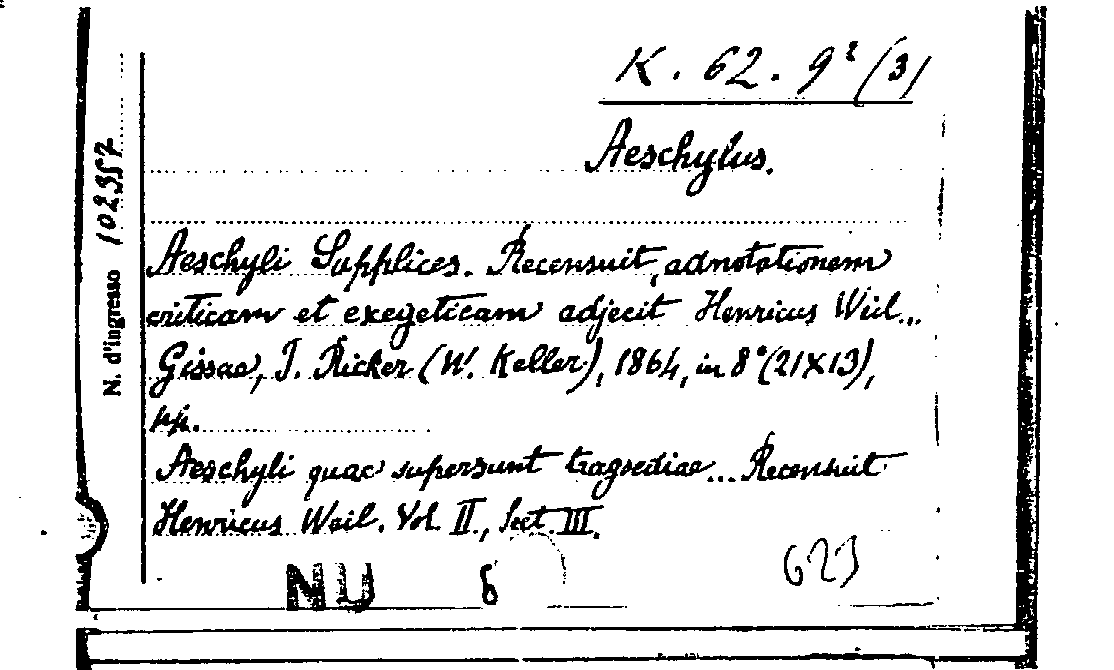 K. 62. 9² (3)
Aeschylus.
N. d'ingresso 102357
Aeschyli Supplices. Recensuit, adnotationem
criticam et exegeticam adjecit Henricus Weil...
Gissae, J. Ricker (W. Keller), 1864, in 8° (21X13),
pp.
Aeschyli quae supersunt tragoediae... Recensuit
Henricus Weil. Vol. II., Sect. III.
NU 6 623